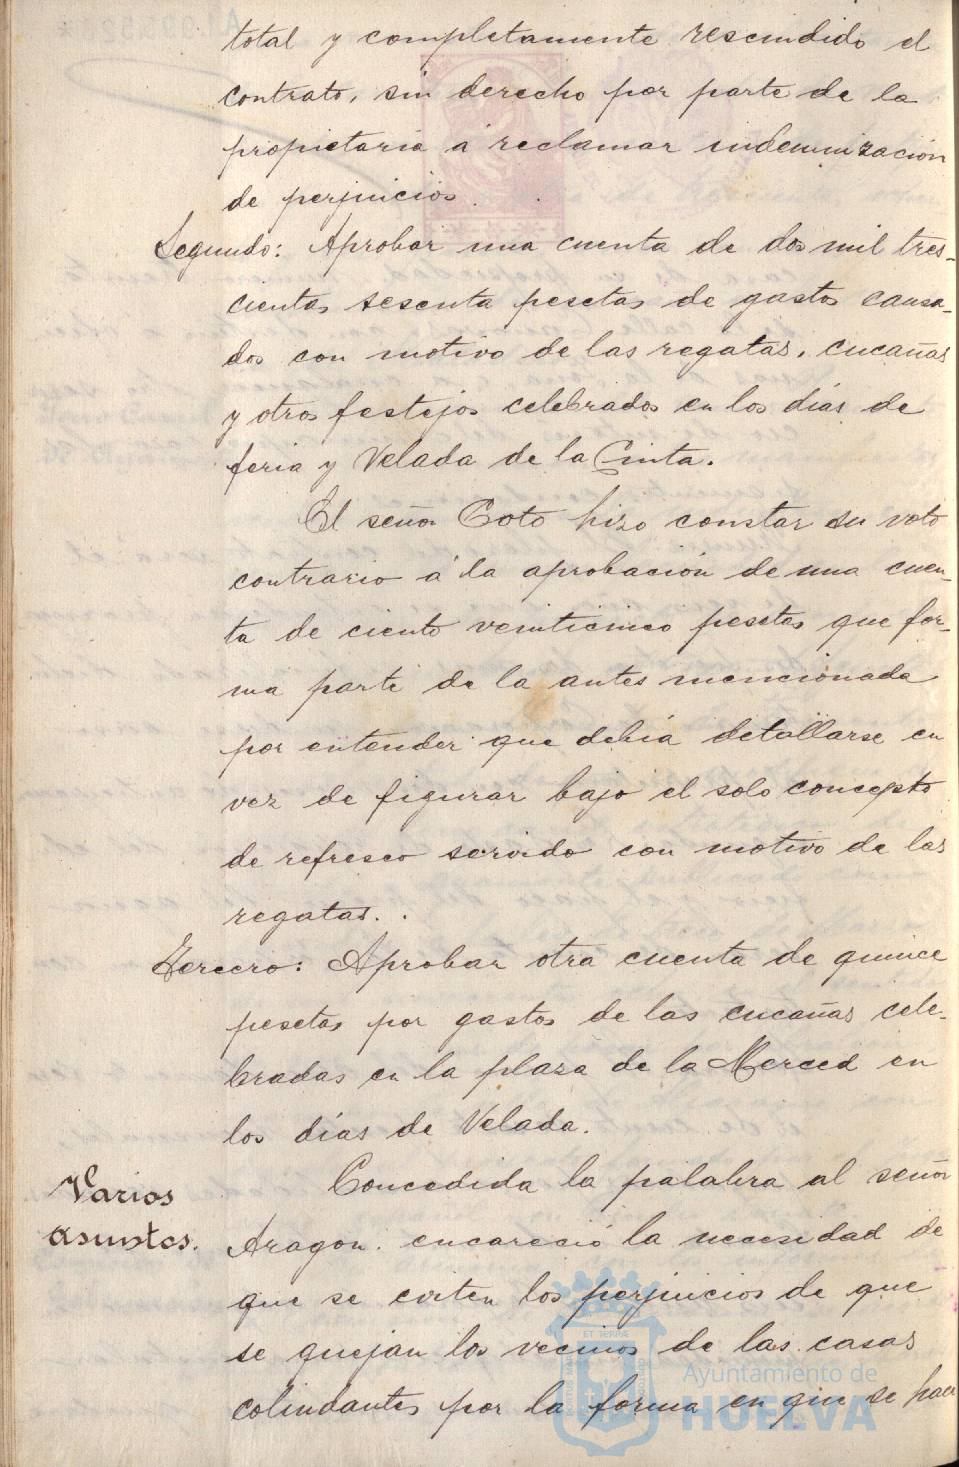 total y completamente rescindido el
contrato, sin derecho por parte de la
propietaria á reclamar indemnización
de perjuicios.
Segundo: Aprobar una cuenta de dos mil tres-
cientas sesenta pesetas de gastos causa-
dos con motivo de las regatas, cucañas
y otros festejos celebrados en los días de
feria y Velada de la Cinta.
El señor Coto hizo constar su voto
contrario á la aprobación de una cuen-
ta de ciento veinticinco pesetas que for-
ma parte de la antes mencionada
por entender que debía detallarse en
vez de figurar bajo el solo concepto
de refresco servido con motivo de las
regatas.
Tercero: Aprobar otra cuenta de quince
pesetas por gastos de las cucañas cele-
bradas en la plaza de la Merced en
los días de Velada.
Varios
asuntos.
Concedida la palabra al señor
Aragon. encareció la necesidad de
que se eviten los perjuicios de que
se quejan los vecinos de las casas
colindantes por la forma en que se hace
Ayuntamiento de
HUELVA